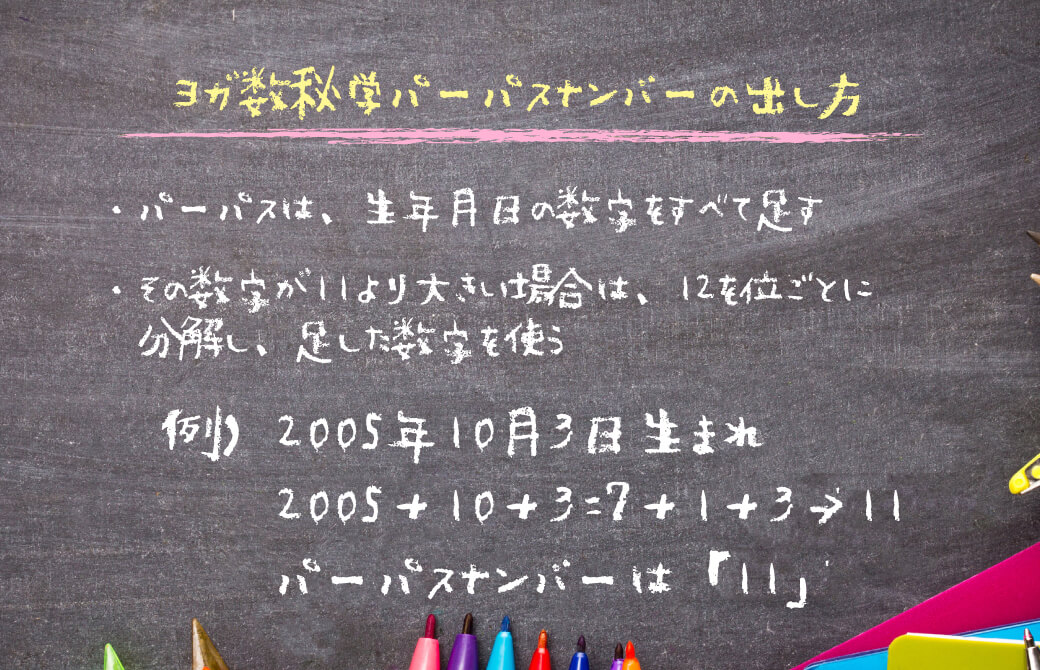 ヨガ数秘学パーパスナンバーの出し方
・パーパスは、生年月日の数字をすべて足す
・その数字が11より大きい場合は、12を位ごとに
分解し、足した数字を使う
例) 2005年10月3日生まれ
2005+10+3=7+1+3→11
パーパスナンバーは「11」